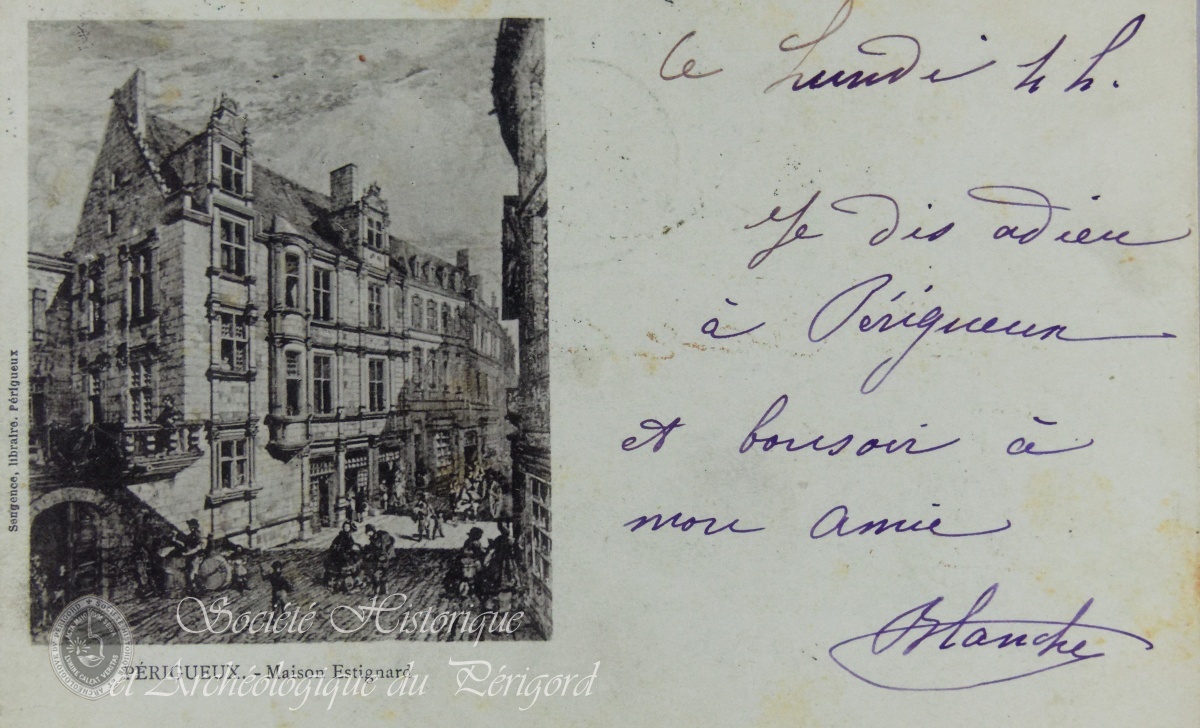 Ce Lundi 4 h.
Je dis adieu
à Périgueux
et bonsoir à
mon amie
Blanche
Sengence, libraire, Périgueux
PÉRIGUEUX. - Maison Estignard
Société Historique
et Archéologique du Périgord